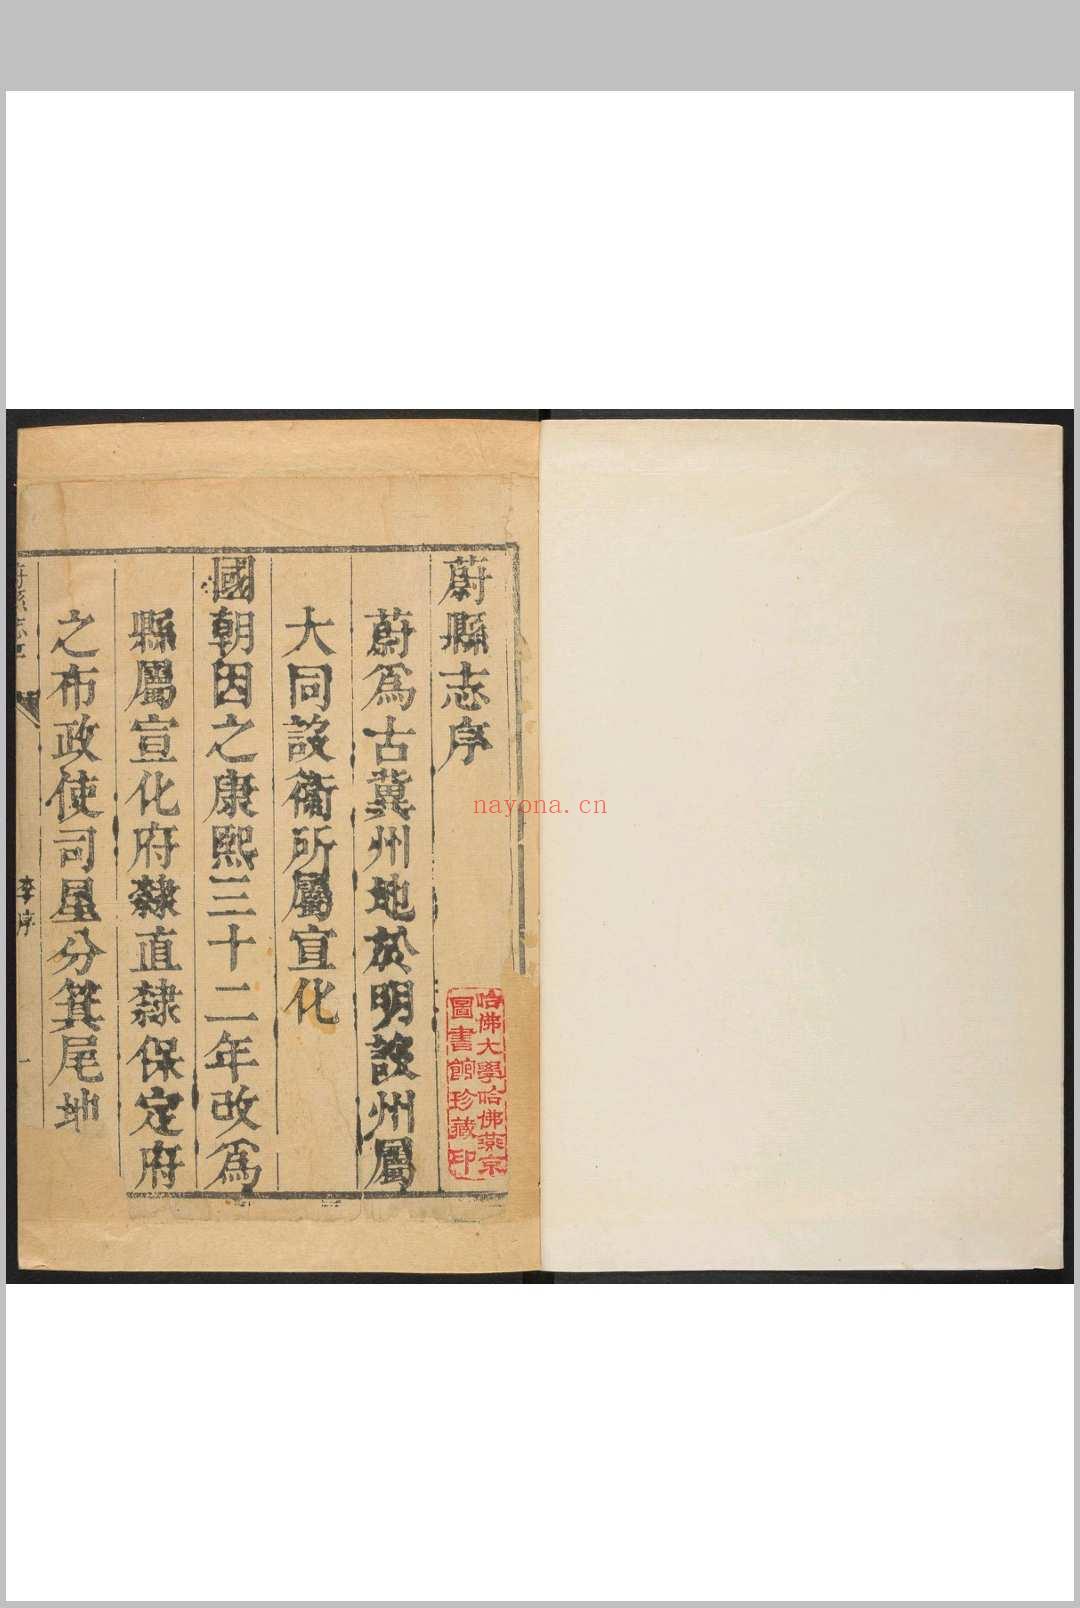 蔚縣志序
蔚爲古冀州地於明設州屬
大同設衞所屬宣化
國朝因之康熙三十二年改爲
縣屬宣化府隸直隸保定府
之布政使司星分箕尾地
李序
一
哈佛大學哈佛燕京
圖書館珍藏印
nayona.cn